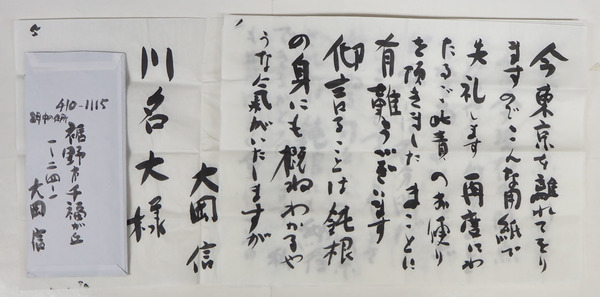 今東京を離れてをり
ますのでこんな用紙で
失礼します 再度にわ
たるご叱責のお便り
を頂きました まことに
有難うございます
仰言ることは鈍根
の身にも概ねわかるや
うな気がいたしますが
大岡信
川名大様
410-1115
裾野市千福が丘
一-二四-一
大岡信